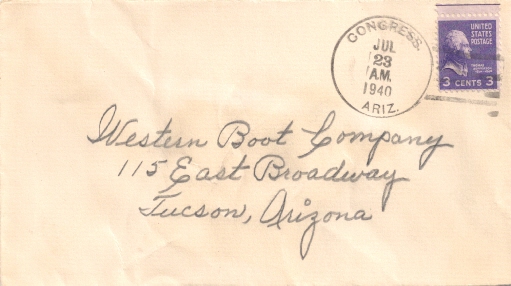 CONGRESS.
JUL
23
A.M.
1940
ARIZ.
UNITED
STATES
POSTAGE
3 CENTS 3
Western Boot Company
115 East Broadway
Tucson, Arizona